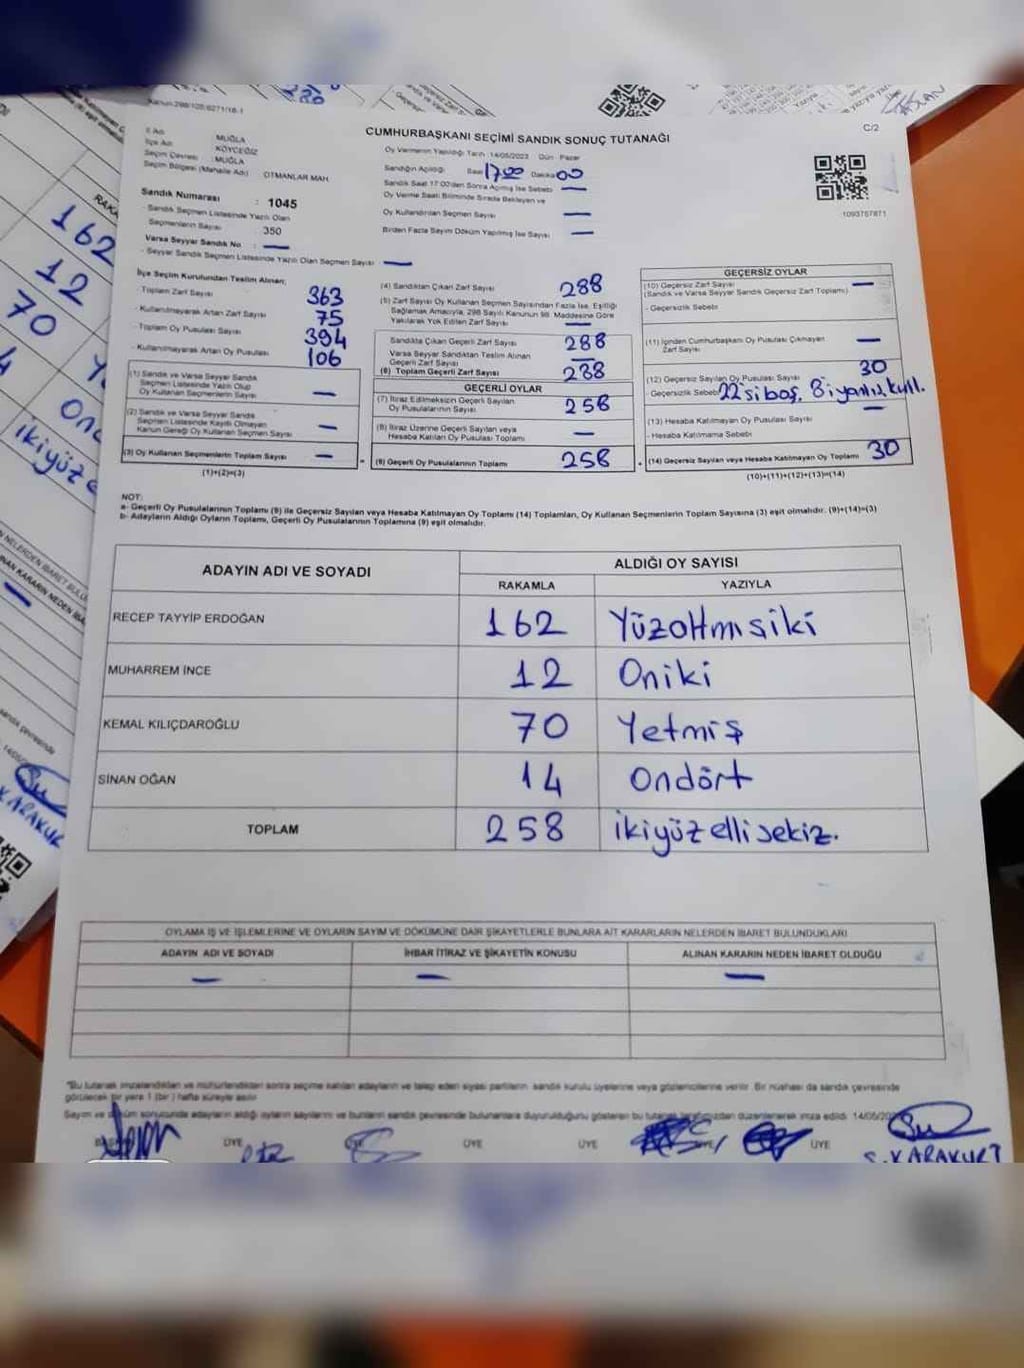 Kanun 298/105
C/2
CUMHURBAŞKANI SEÇİMİ SANDIK SONUÇ TUTANAĞI
İl Adı : MUĞLA
İlçe Adı : KÖYCEĞİZ
Seçim Çevresi : MUĞLA
Seçim Bölgesi (Mahalle Adı) OTMANLAR MAH.
Sandık Numarası : 1045
- Sandık Seçmen Listesinde Yazılı Olan
Seçmenlerin Sayısı : 350
Varsa Seyyar Sandık No : —
- Seyyar Sandık Seçmen Listesinde Yazılı Olan Seçmen Sayısı : —
Oy Vermenin Yapıldığı Tarih : 14/05/2023 Gün : Pazar
Sandığın Açıldığı Saat 17:00 Dakika 00
Sandık Saat 17:00'den Sonra Açılmış İse Sebebi —
Oy Verme Saati Bitiminde Sırada Bekleyen ve
Oy Kullandırılan Seçmen Sayısı —
Birden Fazla Sayım Döküm Yapılmış İse Sayısı —
1093757871
İlçe Seçim Kurulundan Teslim Alınan;
- Toplam Zarf Sayısı 363
- Kullanılmayarak Artan Zarf Sayısı 75
- Toplam Oy Pusulası Sayısı 394
- Kullanılmayarak Artan Oy Pusulası 106
(1) Sandık ve Varsa Seyyar Sandık
Seçmen Listesinde Yazılı Olup
Oy Kullanan Seçmenlerin Sayısı —
(2) Sandık ve Varsa Seyyar Sandık
Seçmen Listesinde Kayıtlı Olmayan
Kanun Gereği Oy Kullanan Seçmen Sayısı —
(3) Oy Kullanan Seçmenlerin Toplam Sayısı —
(1)+(2)=(3)
(4) Sandıktan Çıkan Zarf Sayısı 288
(5) Zarf Sayısı Oy Kullanan Seçmen Sayısından Fazla İse, Eşitliği
Sağlamak Amacıyla, 298 Sayılı Kanunun 98. Maddesine Göre
Yakılarak Yok Edilen Zarf Sayısı —
Sandıkta Çıkan Geçerli Zarf Sayısı 288
Varsa Seyyar Sandıktan Teslim Alınan
Geçerli Zarf Sayısı —
(6) Toplam Geçerli Zarf Sayısı 288
GEÇERLİ OYLAR
(7) İtiraz Edilmeksizin Geçerli Sayılan
Oy Pusulalarının Sayısı 258
(8) İtiraz Üzerine Geçerli Sayılan veya
Hesaba Katılan Oy Pusulaları Toplamı —
(9) Geçerli Oy Pusulalarının Toplamı 258
GEÇERSİZ OYLAR
(10) Geçersiz Zarf Sayısı —
(Sandık ve Varsa Seyyar Sandık Geçersiz Zarf Toplamı)
- Geçersizlik Sebebi
(11) İçinden Cumhurbaşkanı Oy Pusulası Çıkmayan
Zarf Sayısı —
(12) Geçersiz Sayılan Oy Pusulası Sayısı 30
- Geçersizlik Sebebi 22'si boş, 8'i yanlış kull.
(13) Hesaba Katılmayan Oy Pusulası Sayısı —
- Hesaba Katılmama Sebebi
(14) Geçersiz Sayılan veya Hesaba Katılmayan Oy Toplamı 30
(10)+(11)+(12)+(13)=(14)
NOT:
a- Geçerli Oy Pusulalarının Toplamı (9) ile Geçersiz Sayılan veya Hesaba Katılmayan Oy Toplamı (14) Toplamları, Oy Kullanan Seçmenlerin Toplam Sayısına (3) eşit olmalıdır. (9)+(14)=(3)
b- Adayların Aldığı Oyların Toplamı, Geçerli Oy Pusulalarının Toplamına (9) eşit olmalıdır.
ADAYIN ADI VE SOYADI
ALDIĞI OY SAYISI
RAKAMLA YAZIYLA
RECEP TAYYİP ERDOĞAN 162
MUHARREM İNCE 12 Oniki
KEMAL KILIÇDAROĞLU 70 Yetmiş
SİNAN OĞAN 14 Ondört
TOPLAM 258 ikiyüz elli sekiz.
OYLAMA İŞ VE İŞLEMLERİNE VE OYLARIN SAYIM VE DÖKÜMÜNE DAİR ŞİKAYETLERLE BUNLARA AİT KARARLARIN NELERDEN İBARET BULUNDUKLARI
ADAYIN ADI VE SOYADI İHBAR İTİRAZ VE ŞİKAYETİN KONUSU ALINAN KARARIN NEDEN İBARET OLDUĞU
— — —
*Bu tutanak imzalandıktan ve mühürlendikten sonra seçime katılan adayların ve talep eden siyasi partilerin sandık kurulu üyelerine veya gözlemcilerine verilir. Bir nüshası da sandık çevresinde
görülecek bir yere 1 (bir) hafta süreyle asılır.
Sayım ve döküm sonucunda adayların aldığı oyların sayılarını ve bunların sandık çevresinde bulunanlara duyurulduğunu gösteren bu tutanak tarafımızdan düzenlenerek imza edildi. 14/05/
ÜYE ÜYE ÜYE ÜYE
S. KARAKURT
162
12
70
ikiyüz
KARAKUR